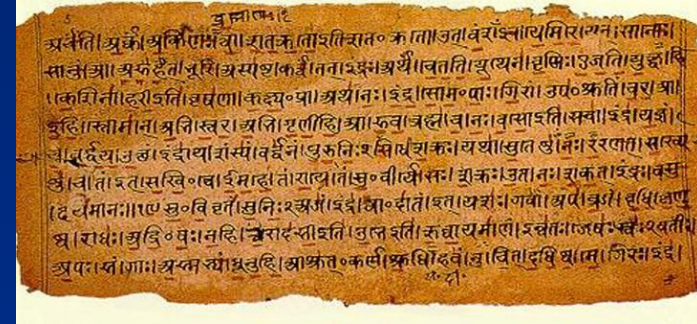 अर्चंति। अर्कं। अर्किणः। शतक्रतो इति शत०क्रतो। उत्। वंशंऽइव। येमिरे। यत्। सानोः।
सानुं। आ। अरुहत्। भूरि। अस्पष्ट। कर्त्वं। तत्। इंद्रः। अर्थं। चेतति। यूथेन। वृष्णिः। एजति। युक्ष्व। हि
। केशिना। हरी इति। वृषणा। कक्ष्य०प्रा। अथ। नः। इंद्र। सोम०पाः। गिरां। उप०श्रुतिं। चर। आ
इहि। स्तोमान्। अभि। स्वर। अभि। गृणीहि। आ। रुव। ब्रह्म। च। नः। वसो इति। सचा। इंद्र। यज्ञं।
च। वर्धय। उक्थं। इंद्राय। शंस्यं। वर्धनं। पुरुनिः२सिधे। शक्रः। यथा। सुतेषु। नः। ररणत्। सख्ये
षु। च। तं। इत्। सखि०त्वे। ईमहे। तं। राये। तं। सु०वीर्ये। सः। शक्रः। उत। नः। शकत्। इंद्रः। वसु
। दयमानः॥१९ सु०विवृतं। सुनिः२अजं। इंद्र। त्वा०दातं। इत्। यशः। गवां। अप। व्रजं। वृधि। कृणु
ष्व। राधः। अद्रि०वः। नहि। त्वा। रोदसी इति। उभे इति। ऋघायमाणं। इन्वतः। जेषः। स्वः२वतीः
अपः। सं। गाः। अस्मभ्यं। धूनुहि। आश्रुत्०कर्ण। श्रुधि। हवं। नु। चित्। दधिष्व। मे। गिरः। इंद्र।